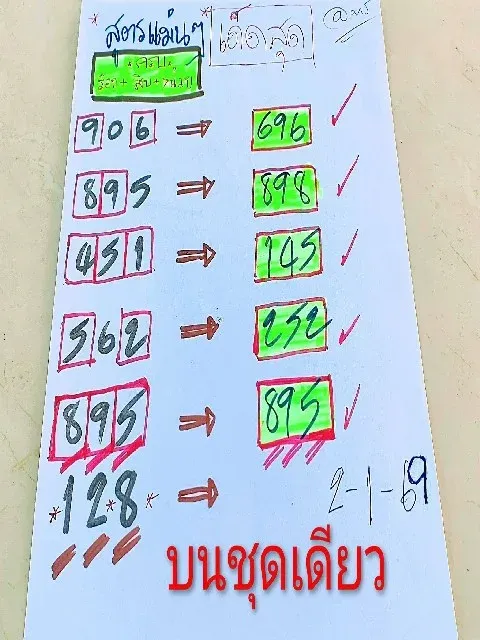 *สูตรแม่นๆ เด็ดสุด
ร้อย+สิบ+หน่วย
906 ⇒ 696 ✓
895 ⇒ 898 ✓
451 ⇒ 145 ✓
562 ⇒ 252 ✓
895 ⇒ 895 ✓
*12*8* ⇒ 2-1-69
บนชุดเดียว